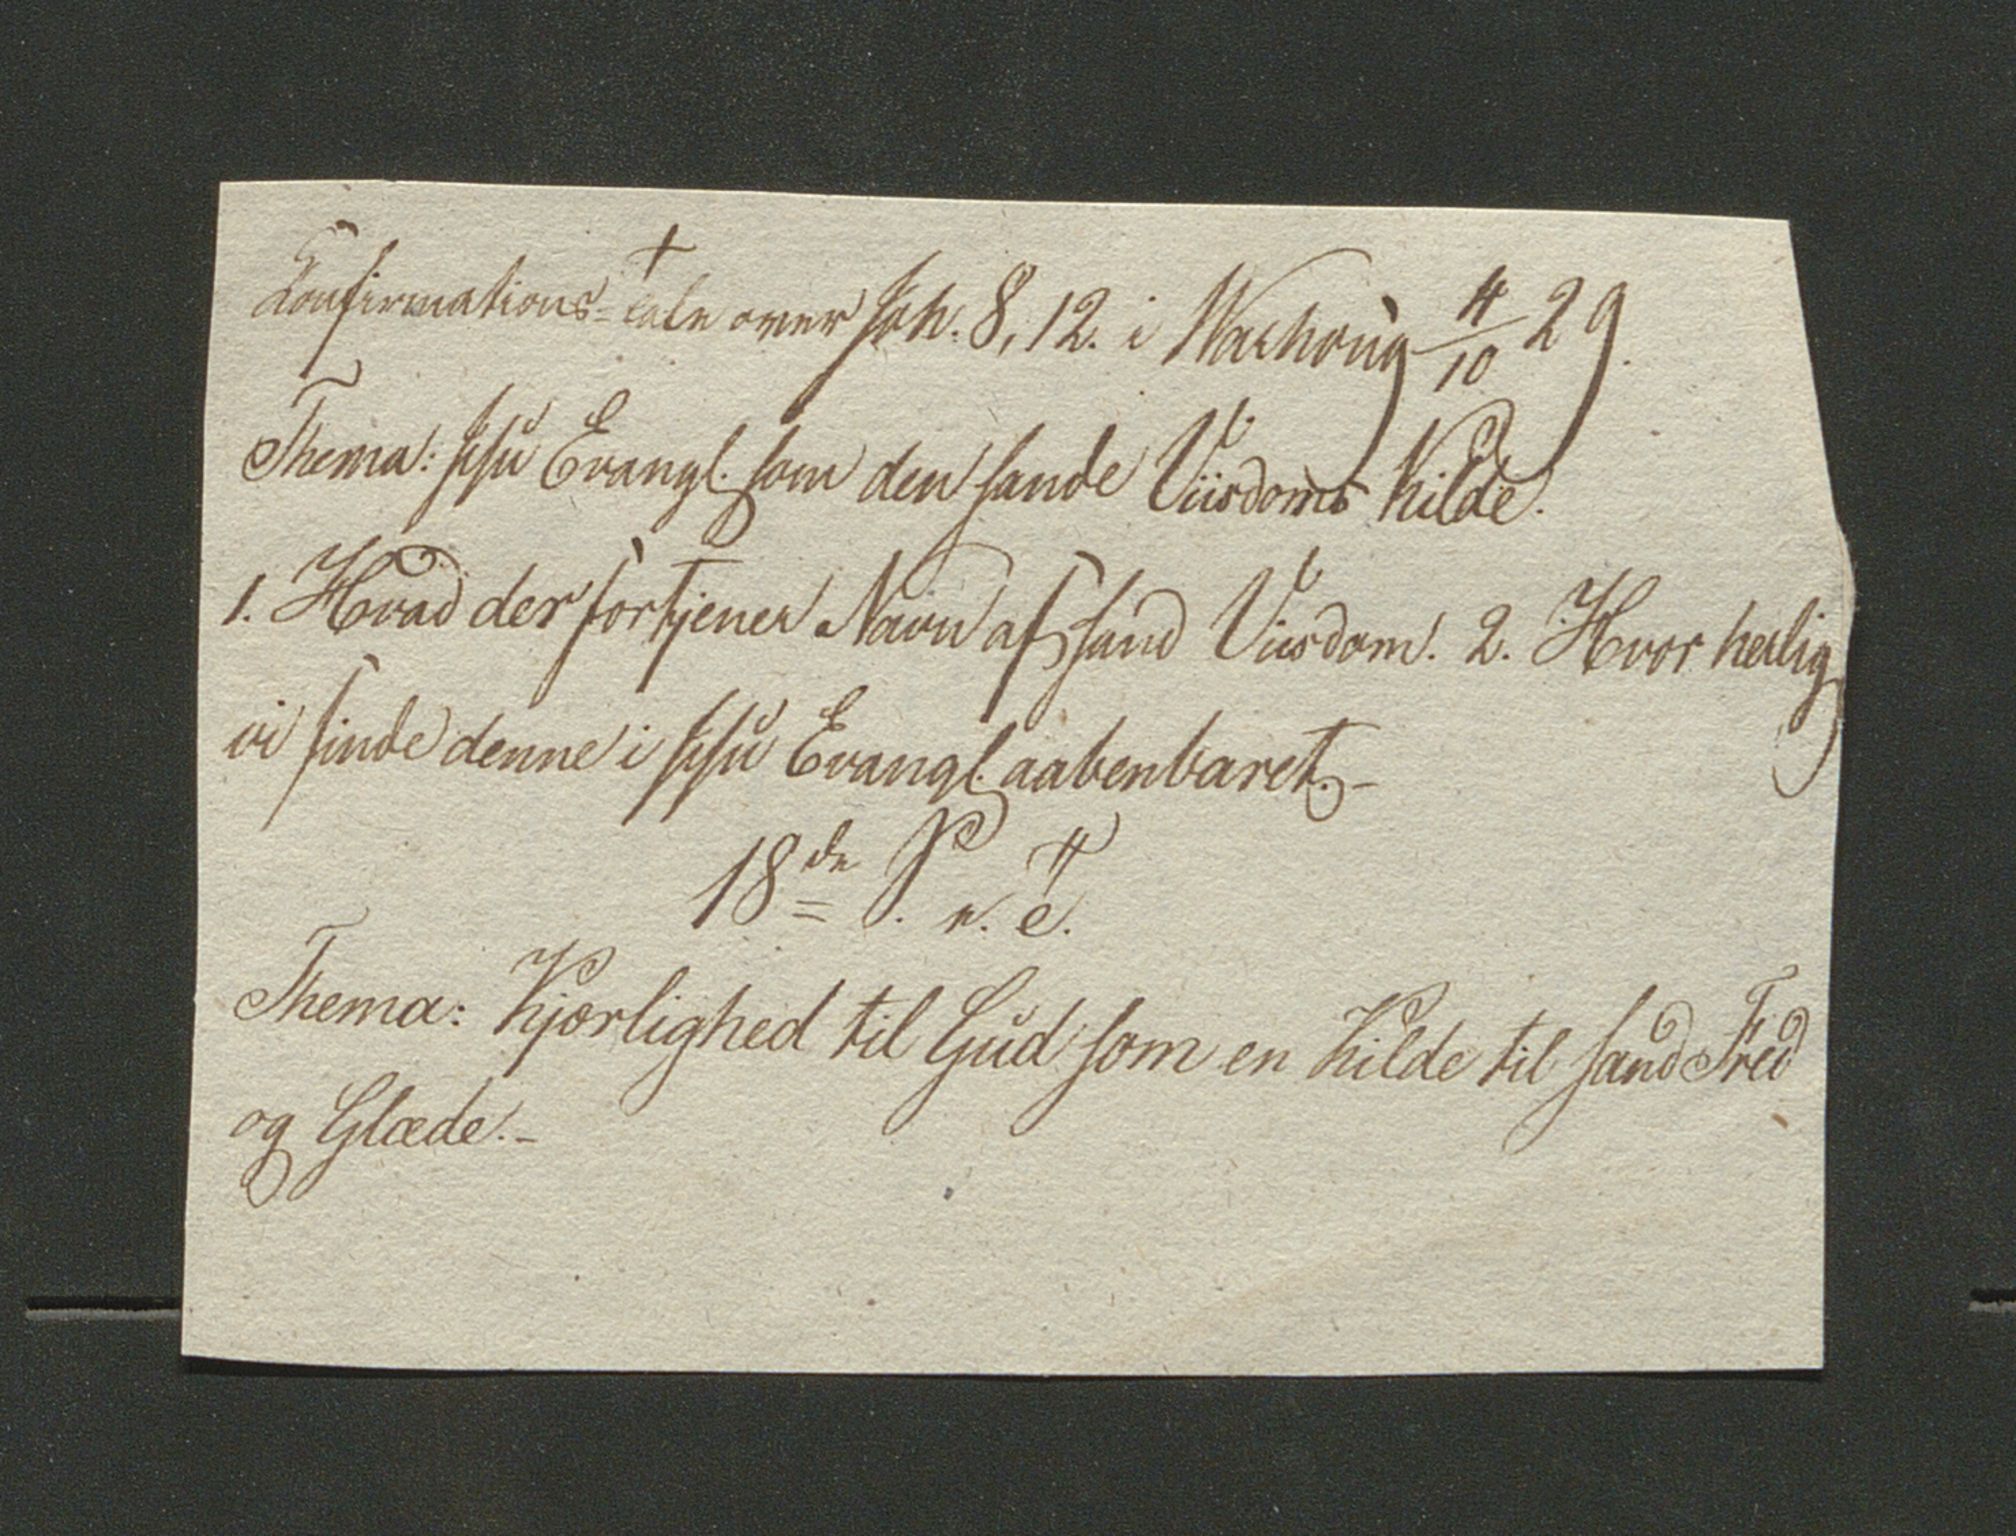 Konfirmations-tale over Joh. 8, 12. i Warhoug 4/10 29.
Thema: Jsu Evangl. som den sande Viisdoms Kilde.
1. Hvad der fortjener Navn af sand Viisdom. 2. Hvor herlig
vi finde denne i Jsu Evangl. aabenbaret.-
18de S. e. T.
Thema: Kjærlighed til Gud som en Kilde til sand Fred
og Glæde.-